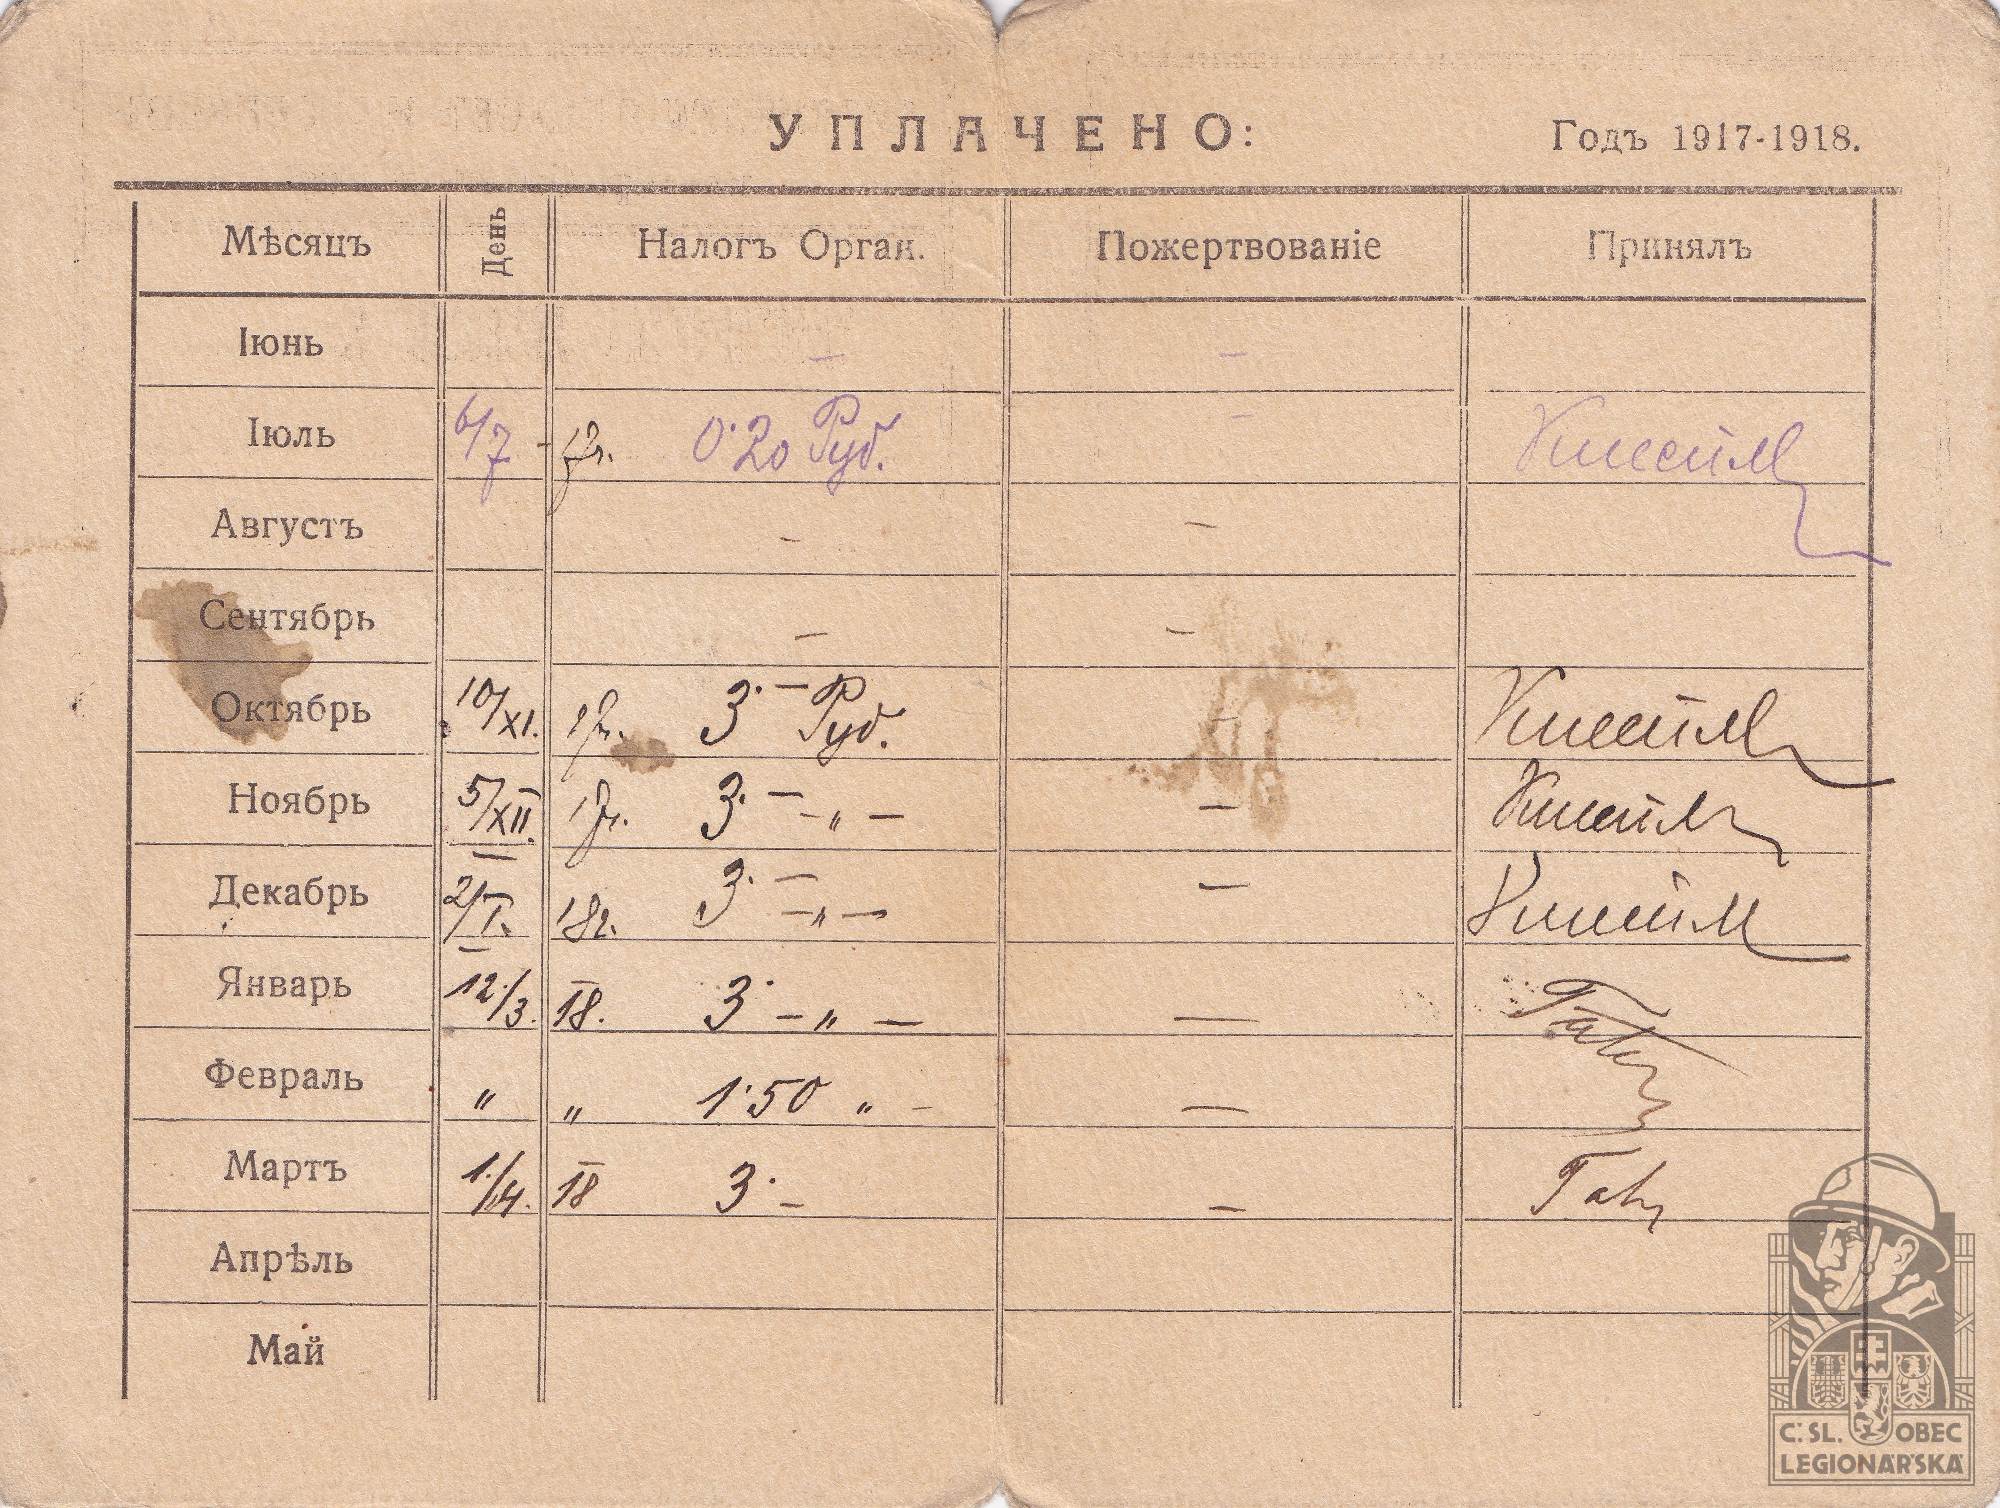 УПЛАЧЕНО: Годъ 1917-1918.
Мѣсяцъ День Налогъ Орган. Пожертвованіе Принялъ
Іюнь – –
Іюль 6/7 - 17г. 0·20 Руб. –
Августъ – –
Сентябрь – –
Октябрь 10/XI. 17г. 3·– Руб. –
Ноябрь 5/XII. 17г. 3·– –„– –
Декабрь 2/I. 18г. 3·– –„– –
Январь 12./3. 18. 3· –„– –
Февраль „ „ 1·50 „ – –
Мартъ 1./4. 18 3·– –
Апрѣль
Май
Č. SL. OBEC
LEGIONÁŘSKÁ